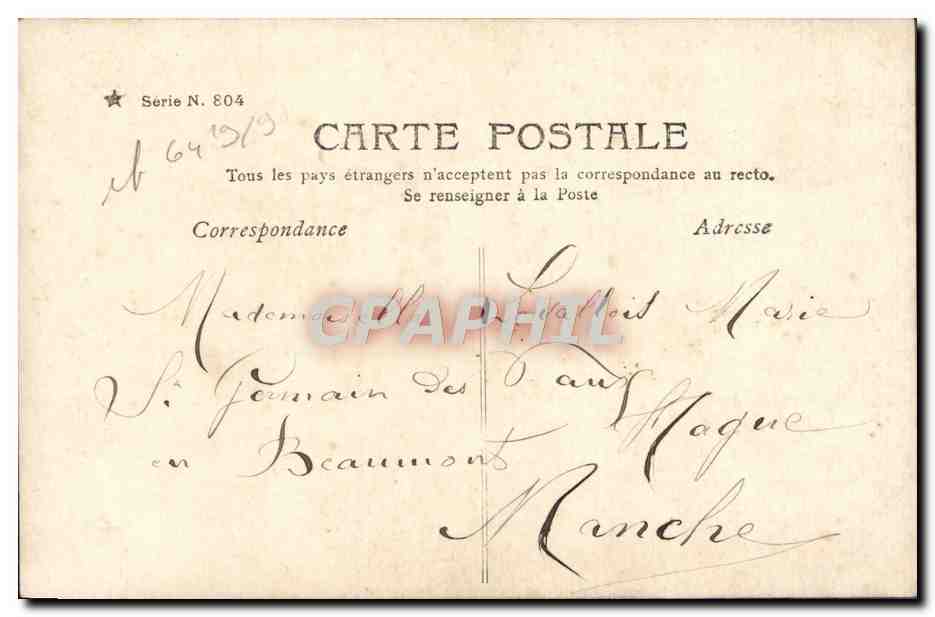 ★ Série N. 804
64 19/9
CARTE POSTALE
Tous les pays étrangers n'acceptent pas la correspondance au recto.
Se renseigner à la Poste
Correspondance Adresse
Mademoiselle Levallois Marie
St Germain des Vaux
Hague
en Beaumont
Manche
CPAPHIL